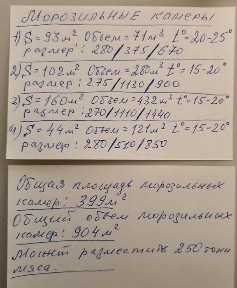 Морозильные камеры
1) S=93м² Объем=71м³ t°=20-25°
размер: 280/375/670
2) S=102м² Объем=280м³ t°=15-20°
размер: 275/1130/900
3) S=160м² Объем=432м³ t°=15-20°
размер: 270/1110/1440
4) S=44м² Объем=121м³ t°=15-20°
размер: 280/510/850
Общая площадь морозильных
камер: 399м²
Общий объем морозильных
камер: 904м³
Может разместить 250 тонн
мяса.